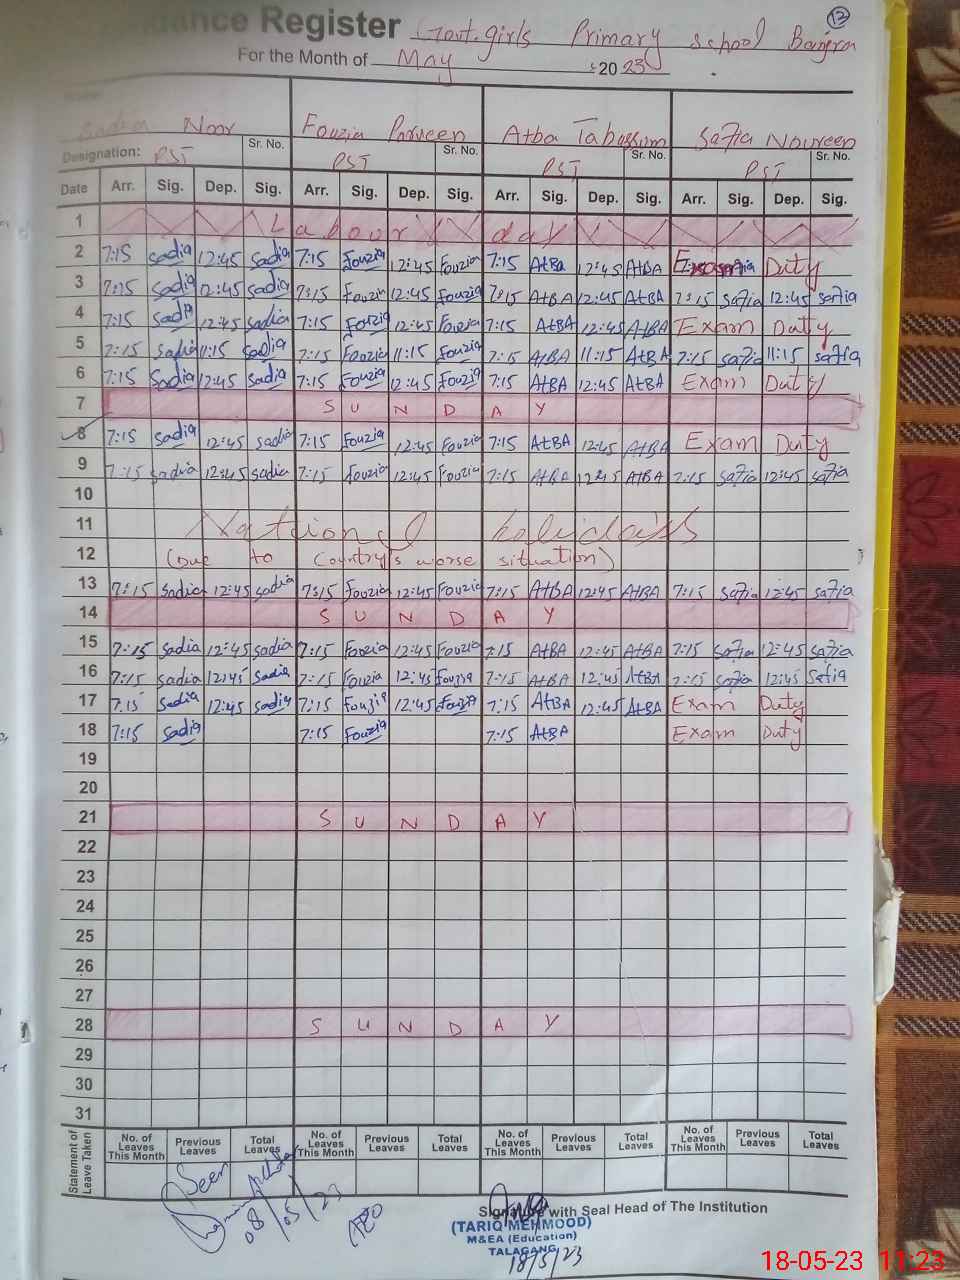 dance Register Govt. girls Primary school 12
For the Month of May 2023
Sadia Noor Fouzia Parveen Atba Tabassum Safia Noureen
Designation: PST Sr. No. PST Sr. No. PST Sr. No. PST Sr. No.
Date Arr. Sig. Dep. Sig. Arr. Sig. Dep. Sig. Arr. Sig. Dep. Sig. Arr. Sig. Dep. Sig.
1 Labour day
2 7:15 sadia 12:45 sadia 7:15 fouzia 12:45 fouzia 7:15 AtBa 12:45 AtBA Duty
3 7:15 sadia 12:45 sadia 7:15 fouzia 12:45 fouzia 7:15 AtBA 12:45 AtBA 7:15 safia 12:45 safia
4 7:15 sadia 12:45 sadia 7:15 fouzia 12:45 fouzia 7:15 AtBA 12:45 AtBA Exam Duty
5 7:15 sadia 11:15 sadia 7:15 fouzia 11:15 fouzia 7:15 AtBA 11:15 AtBA 7:15 safia 11:15 safia
6 7:15 sadia 12:45 sadia 7:15 fouzia 12:45 fouzia 7:15 AtBA 12:45 AtBA Exam Duty
7 SUNDAY
8 7:15 sadia 12:45 sadia 7:15 fouzia 12:45 fouzia 7:15 AtBA 12:45 AtBA Exam Duty
9 7:15 sadia 12:45 sadia 7:15 fouzia 12:45 fouzia 7:15 AtBA 12:45 AtBA 7:15 safia 12:45 safia
10
11 National holidays
12 (Due to Country's worse situation)
13 7:15 sadia 12:45 sadia 7:15 fouzia 12:45 fouzia 7:15 AtBA 12:45 AtBA 7:15 safia 12:45 safia
14 SUNDAY
15 7:15 sadia 12:45 sadia 7:15 fouzia 12:45 fouzia 7:15 AtBA 12:45 AtBA 7:15 safia 12:45 safia
16 7:15 sadia 12:45 sadia 7:15 fouzia 12:45 fouzia 7:15 AtBA 12:45 AtBA 7:15 safia 12:45 safia
17 7:15 sadia 12:45 sadia 7:15 fouzia 12:45 fouzia 7:15 AtBA 12:45 AtBA Exam Duty
18 7:15 sadia 7:15 fouzia 7:15 AtBA Exam Duty
19
20
21 SUNDAY
22
23
24
25
26
27
28 SUNDAY
29
30
31
Statement of Leave Taken No. of Leaves This Month Previous Leaves Total Leaves No. of Leaves This Month Previous Leaves Total Leaves No. of Leaves This Month Previous Leaves Total Leaves No. of Leaves This Month Previous Leaves Total Leaves
Seen
08/05/23
AEO
Signature with Seal Head of The Institution
(TARIQ MEHMOOD)
M&EA (Education)
TALAGANG
18/5/23
18-05-23 11:23